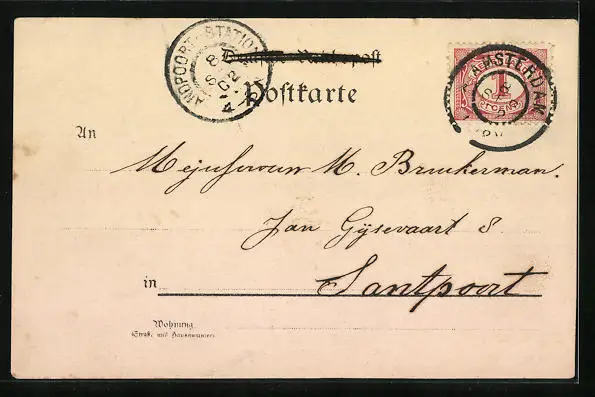 SANDPOORT-STATION
8
S
02
4
Deutsche Reichspost
Postkarte
AMSTERDAM
1
An
Mejufvrouw M. Bruckerman.
Jan Gijsevaart 8
in Santpoort
Wohnung
Straße und Hausnummer